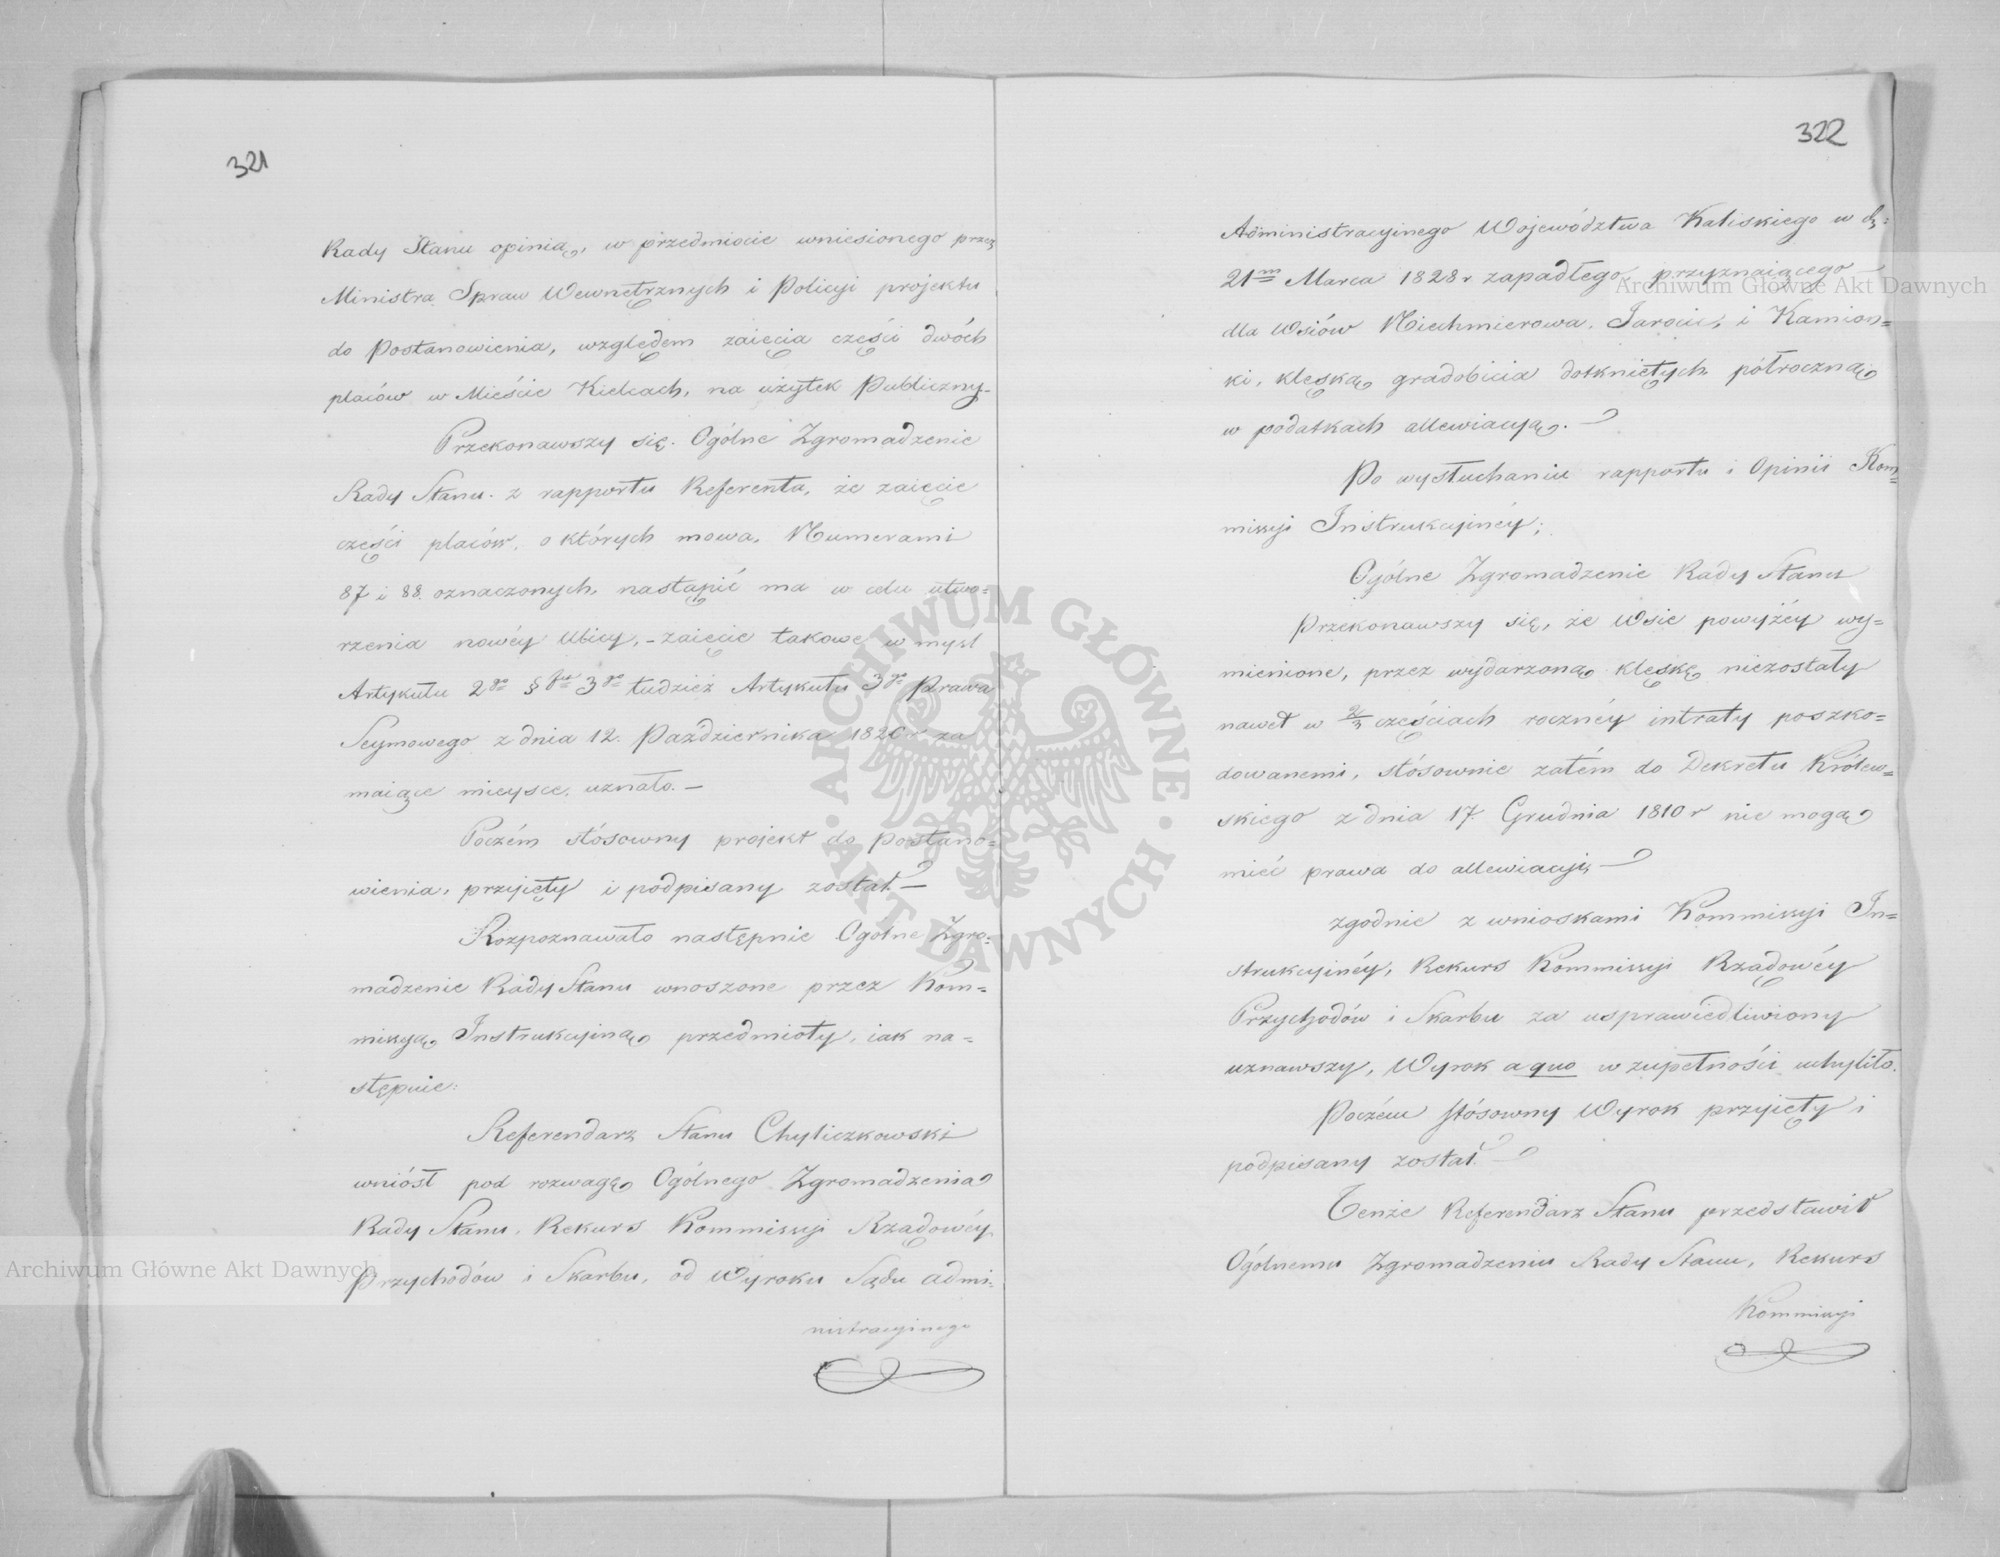 321
Rady Stanu opinią, w przedmiocie wniesionego przez
Ministra Spraw Wewnętrznych i Policyi projektu
do Postanowienia, względem zaięcia części dwóch
placów w Mieście Kielcach, na użytek Publiczny.
Przekonawszy się Ogólne Zgromadzenie
Rady Stanu z rapportu Referenta, że zaięcie
części placów, o których mowa, Numerami
87 i 88 oznaczonych, nastąpić ma w celu utwo-
rzenia nowéy Ulicy, - zaięcie takowe w myśl
Artykułu 2go § 3go tudzież Artykułu 3go Prawa
Seymowego z dnia 12. Października 1820 r za
maiące mieysce, uznało. -
Poczém stósowny projekt do postano-
wienia, przyięty i podpisany został -
Rozpoznawało następnie Ogólne Zgro-
madzenie Rady Stanu wnoszone przez Kom=
missyą Instrukcyiną przedmioty, iak na=
stępuie:
Referendarz Stanu Chyliczkowski
wniósł pod rozwagę Ogólnego Zgromadzenia
Rady Stanu, Rekurs Kommissyi Rządowéy
Przychodów i Skarbu, od Wyroku Sądu admi-
nistracyinego
322
Administracyinego Województwa Kaliskiego w d:
21m Marca 1828 r zapadłego, przyznaiącego
dla Wsiów Niechmierowa, Jarocic, i Kamion=
ki, klęską gradobicia dotkniętych, półroczną
w podatkach allewiacyą. -
Po wysłuchaniu rapportu i Opinii Kom=
missyi Instrukcyinéy;
Ogólne Zgromadzenie Rady Stanu
Przekonawszy się, że Wsie powyżéy wy=
mienione, przez wydarzoną klęskę niezostały
nawet w 2/3 częściach rocznéy intraty poszko=
dowanemi, stósownie zatém do Dekretu Królew=
skiego z dnia 17 Grudnia 1810 r nie mogą
mieć prawa do allewiacyi, -
zgodnie z wnioskami Kommissyi In=
strukcyinéy, Rekurs Kommissyi Rządowéy
Przychodów i Skarbu za usprawiedliwiony
uznawszy, Wyrok a quo w zupełności uchyliło.
Poczém stósowny Wyrok przyięty i
podpisany został. -
Tenże Referendarz Stanu przedstawił
Ogólnemu Zgromadzeniu Rady Stanu, Rekurs
Kommissyi
Archiwum Główne Akt Dawnych
Archiwum Główne Akt Dawnych
ARCHIWUM GŁÓWNE · AKT DAWNYCH ·